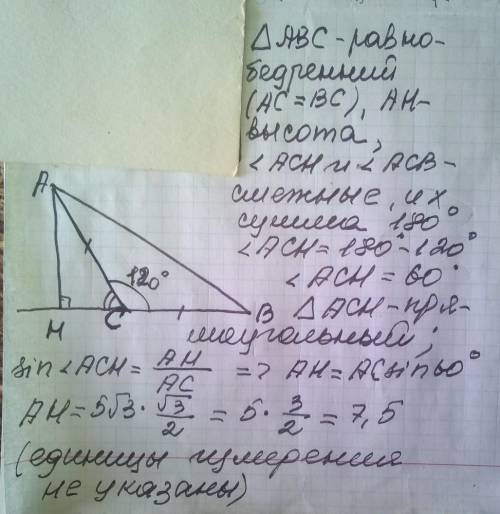 △ABC - равно-
бедренний
(AC=BC), AH-
высота,
∠ACH и ∠ACB-
смежные, их
сумма 180°
∠ACH=180°-120°
∠ACH=60°
△ACH-пря-
моугольный;
A
120°
H
C
B
sin∠ACH= AH/AC => AH=AC sin60°
AH=5√3·√3/2=5·3/2=7,5
(единицы измерения
не указаны)